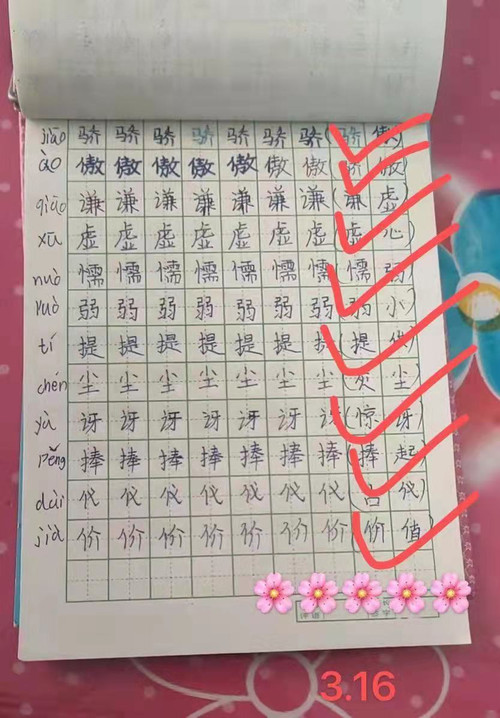 jiāo 骄 骄 骄 骄 骄 骄 骄 (骄 傲)
ào 傲 傲 傲 傲 傲 傲 傲 (骄 傲)
qiāo 谦 谦 谦 谦 谦 谦 谦 (谦 虚)
xū 虚 虚 虚 虚 虚 虚 虚 (虚 心)
nuò 懦 懦 懦 懦 懦 懦 懦 (懦 弱)
ruò 弱 弱 弱 弱 弱 弱 弱 (弱 小)
tí 提 提 提 提 提 提 提 (提 供)
chén 尘 尘 尘 尘 尘 尘 尘 (灰 尘)
yà 讶 讶 讶 讶 讶 讶 讶 (惊 讶)
pěng 捧 捧 捧 捧 捧 捧 捧 (捧 起)
仪 仪 仪 仪 仪 仪 仪 仪)
jià 价 价 价 价 价 价 价 (价 值)
3.16